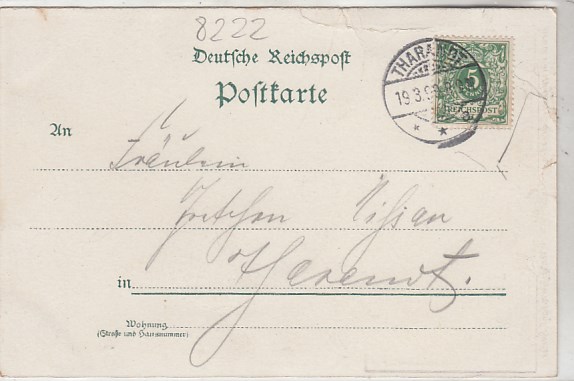 8222
Deutsche Reichspost
Postkarte
THARANDT
19.3.9
5
REICHSPOST
An
Fräulein
Gretchen
in Tharandt.
Wohnung
(Straße und Hausnummer)